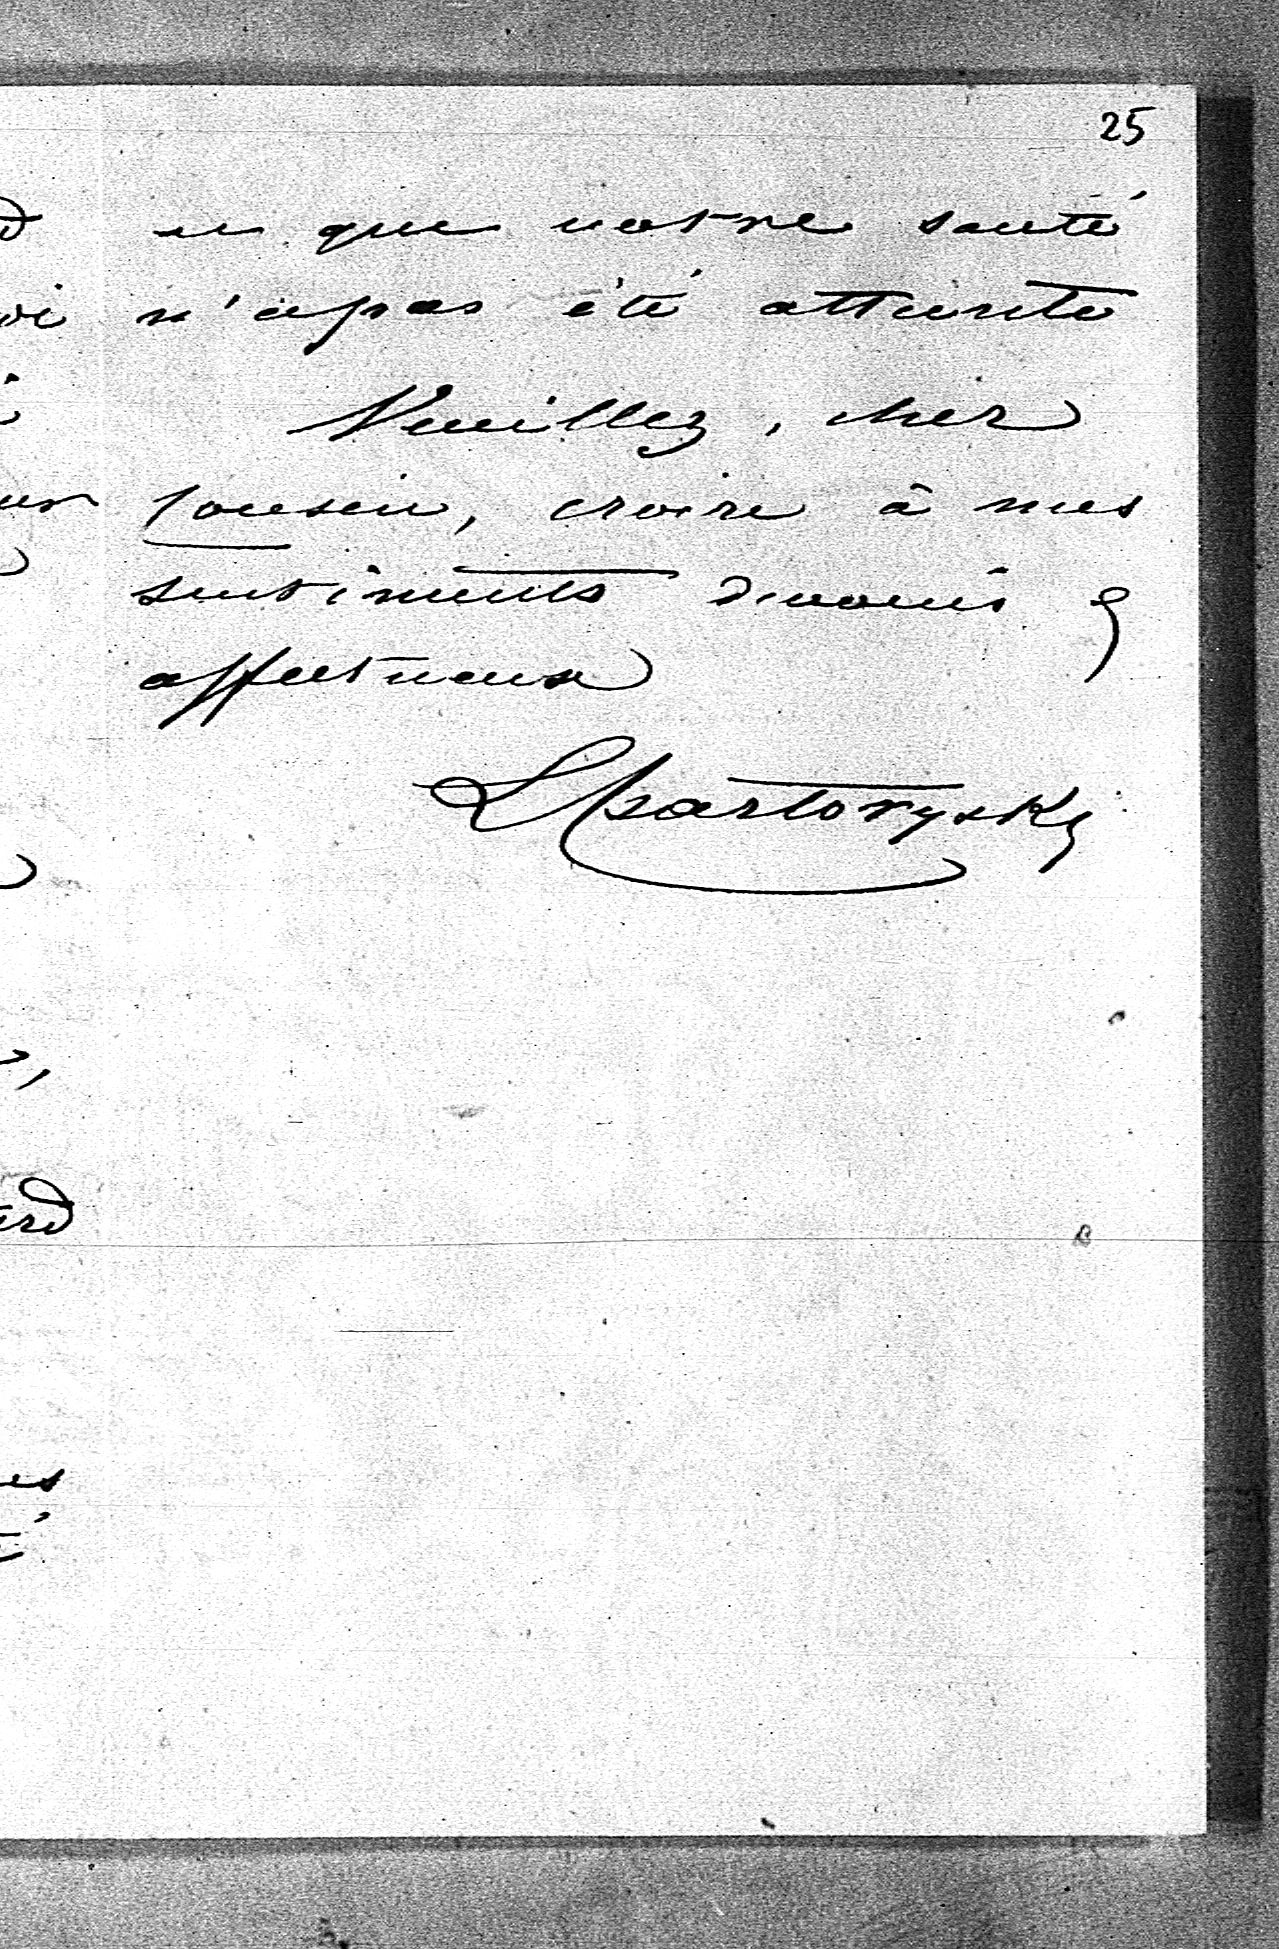 25
et que votre santé
n'a pas été atteinte
Veuillez, cher
Cousin, croire à mes
sentiments dévoués &
affectueux
L Czartoryski